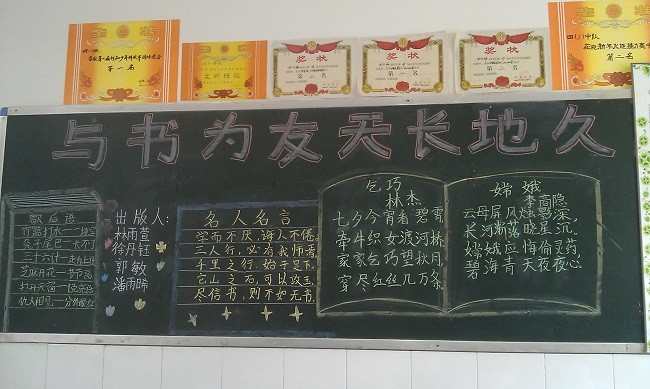 第一名
奖状
奖状
奖状
四(1)中队
第二名
与书为友天长地久
歇后语
竹篮打水一场空
兔子尾巴—长不了
三十六计—走为上计
芝麻开花—节节高
仇人相见—分外眼红
出版人:
林雨萱
徐丹钰
郭敏
潘雨晞
名人名言
学而不厌,诲人不倦。
三人行,必有我师焉
千里之行,始于足下。
它山之石,可以攻玉。
尽信书,则不如无书。
乞巧
林杰
七夕今宵看碧霄
牵牛织女渡河桥
家家乞巧望秋月
穿尽红丝几万条
嫦娥
李商隐
云母屏风烛影深,
长河渐落晓星沉.
嫦娥应悔偷灵药,
碧海青天夜夜心.